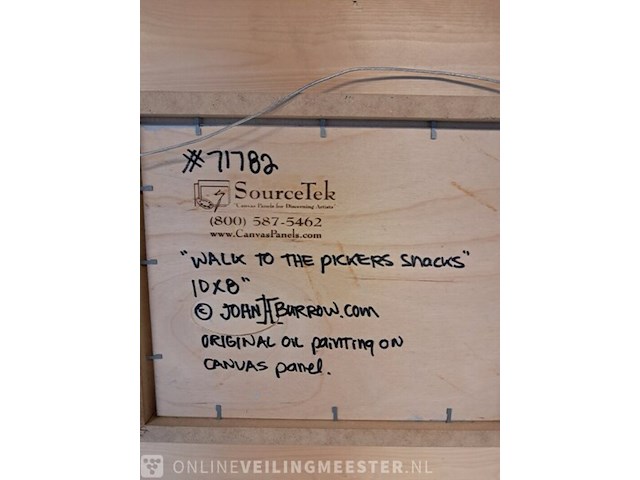 #71782
SourceTek
"Canvas Panels for Discerning Artists"
(800) 587-5462
www.CanvasPanels.com
"WALK TO THE PICKERS SNACKS"
10X8"
© JOAN H BURROW.COM
ORIGINAL OIL PAINTING ON
CANVAS PANEL.
ONLINEVEILINGMEESTER.NL